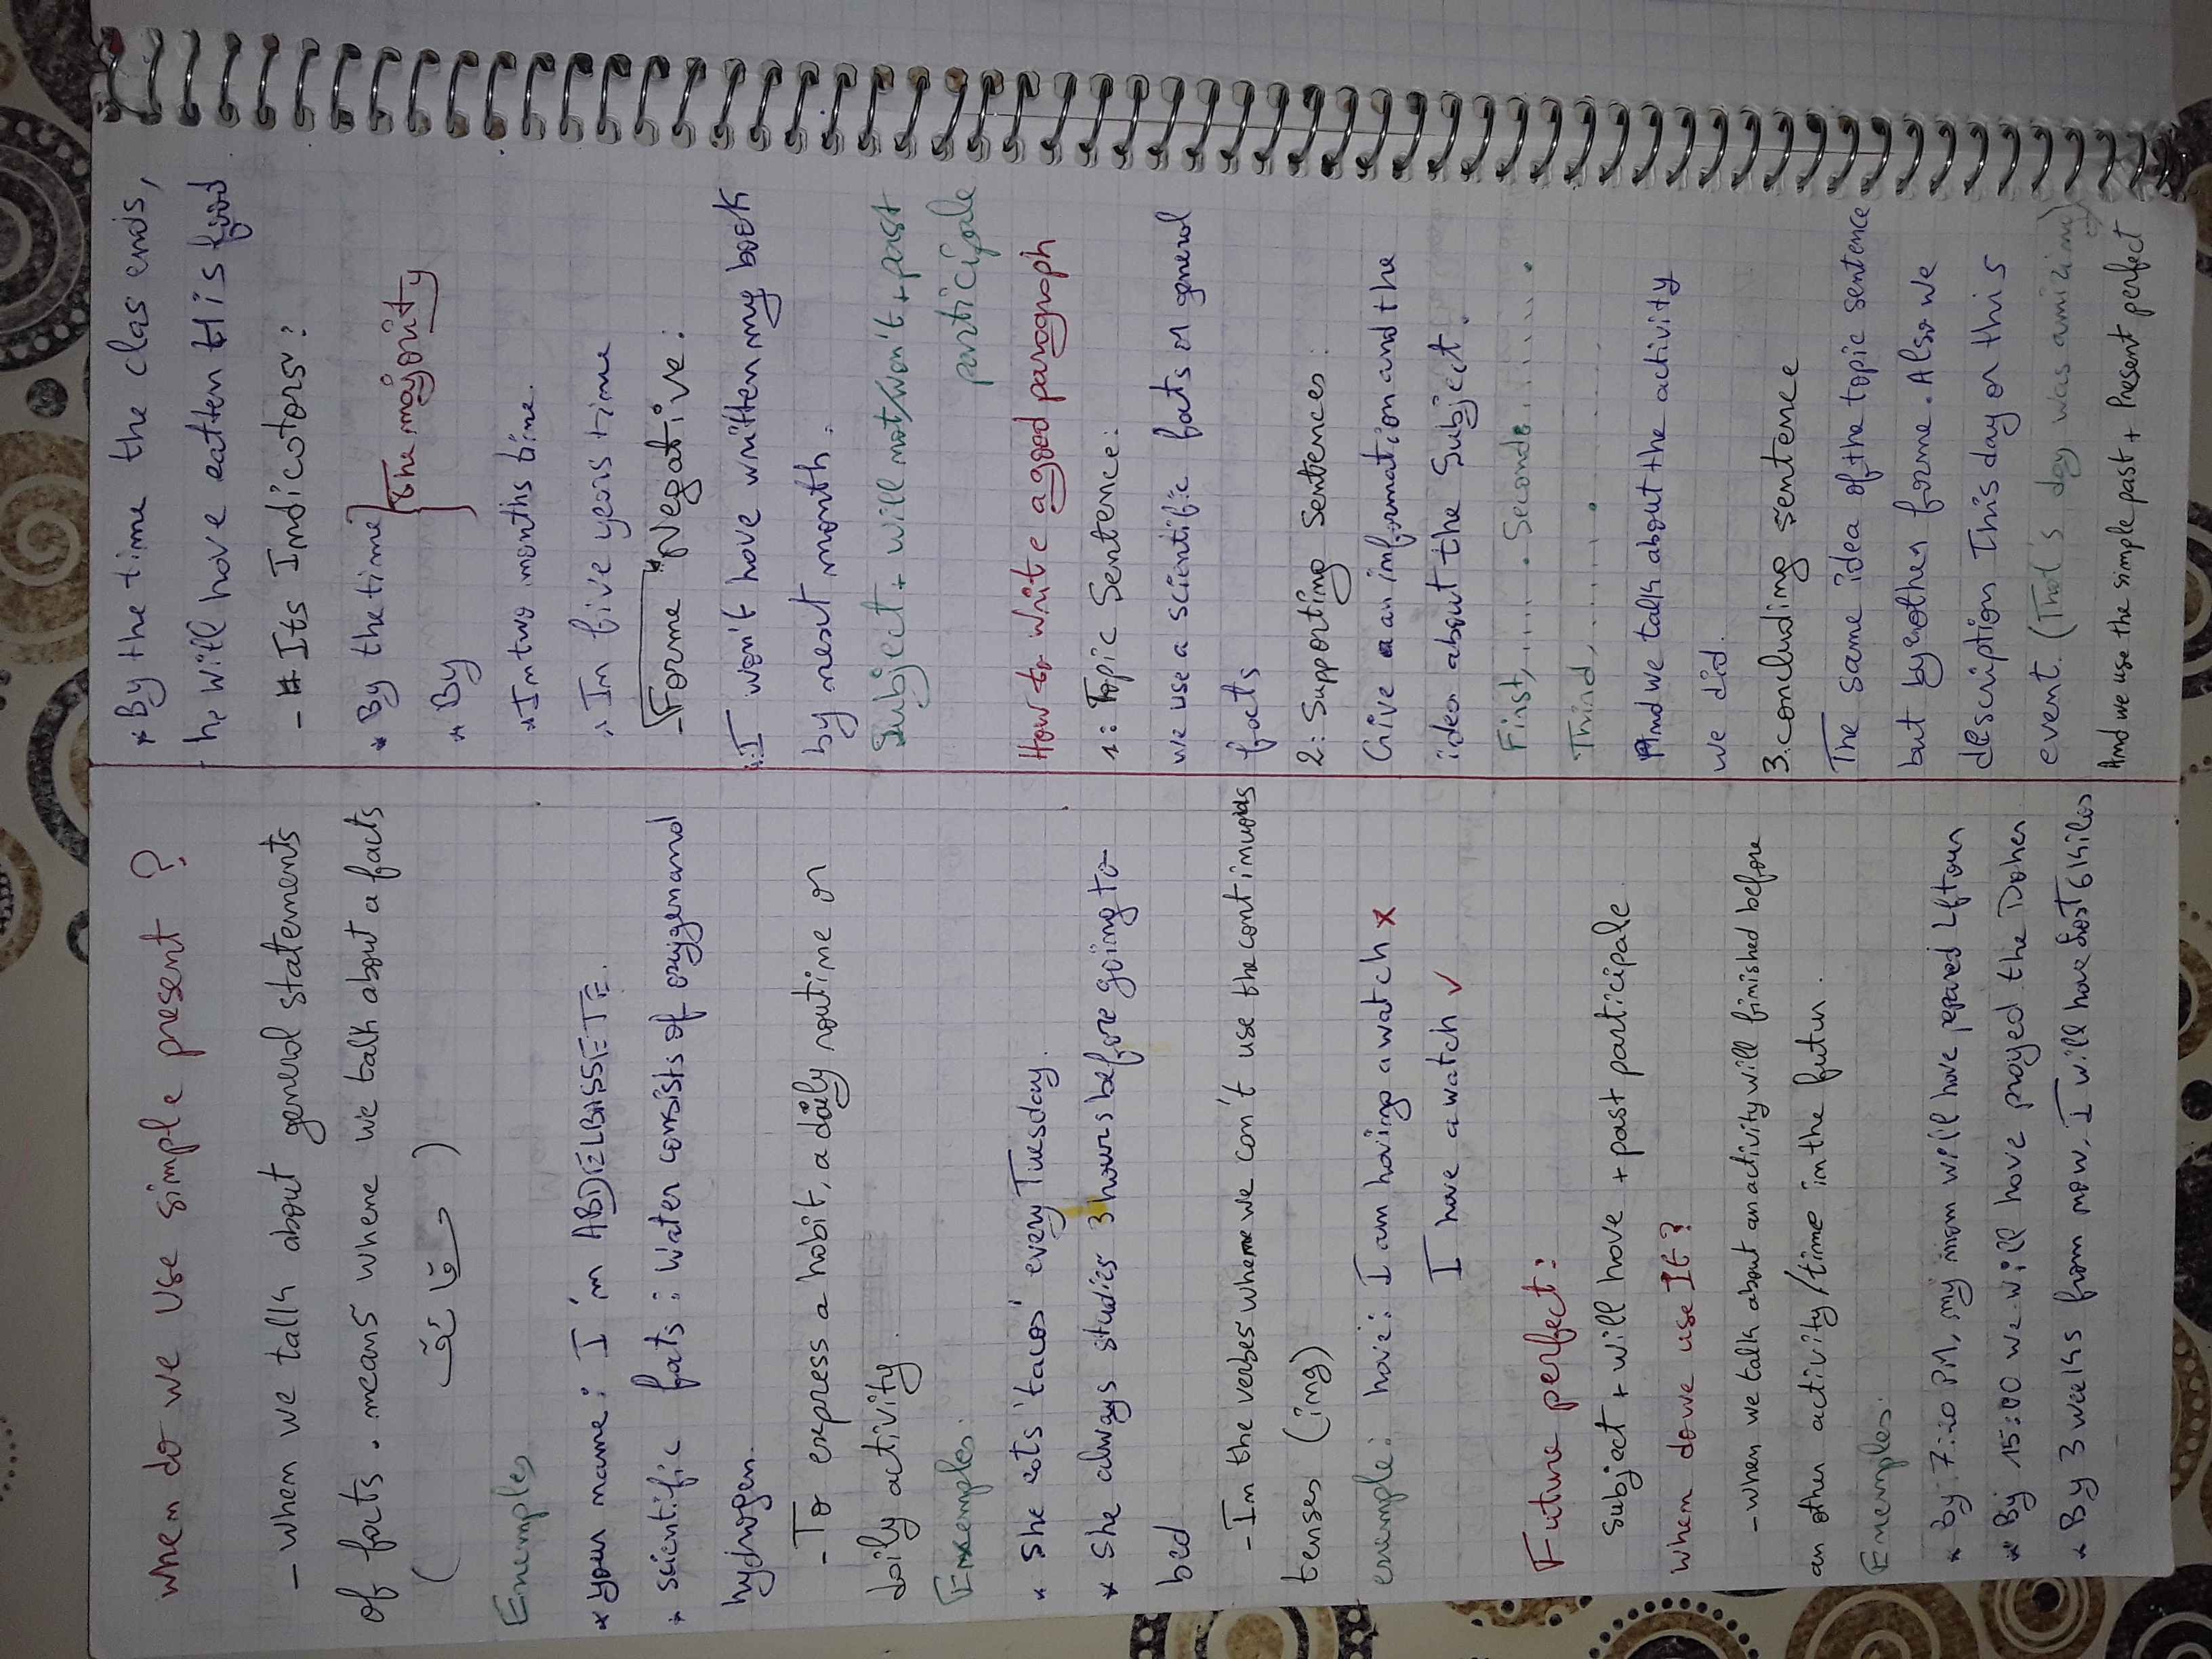 when do we use simple present ?
- when we talk about general statements
of facts . means where we talk about a facts
( حقائق )
Exemples
* your name : I'm ABDELBASSETE.
* scientific facts : Water consists of oxygen and
hydrogen.
- To express a habit, a daily routine or
daily activity .
Exemples:
* She eats 'tacos' every Tuesday.
* She always studies 3 hours before going to
bed
- In the verbes where we can't use the continuous
tenses (ing)
exemple : have : I am having a watch ×
I have a watch ✓
Future perfect :
Subject + will have + past participale
when do we use It ?
- when we talk about an activity will finished before
an other activity / time in the futur .
Exemples.
* By 7:20 PM, my mom will have pepared Lftour
* By 15:00 we will have prayed the Doher
* By 3 weeks from now, I will have lost 6 kilos
* By the time the clas ends,
he will have eatten His food
- Its Indicators :
* By the time
* By
The majority
* In two months time.
* In five years time
- Forme "Negative :
* I won't have written my book
by next month .
Subject + will not/won't + past
participale
How to write a good paragraph
1 : Topic Sentence :
we use a scientific facts or general
facts
2 : Supporting Sentences :
Give an information and the
idea about the Subject .
First, ..... . Seconde ....... .
Third, ...... .
And we talk about the activity
we did.
3. concluding sentence
The same idea of the topic sentence
but by another forme . Also we
description This day or this
event. (That's day was amizing)
And we use the simple past + Present perfect